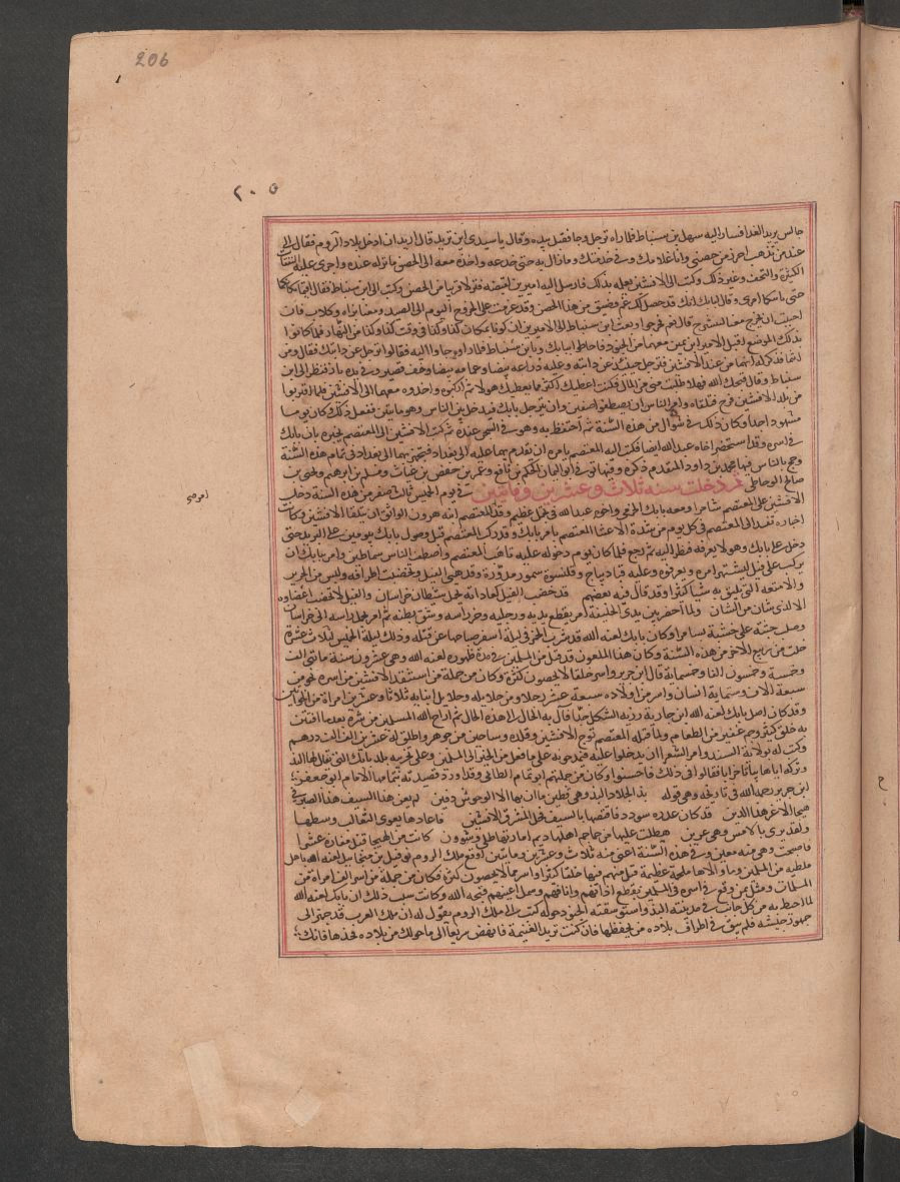 206
٢٠٥
جالس يريد الغدا فسار اليه سهل بن سنباط فلما راه ترجل وجا فقبل يده وقال يا سيدى اين تريد قال اريد ان ادخل بلاد الروم فقال الى
عند من تذهب احرز من حصنى وانا غلامك وفى خدمتك وما زال به حتى خدعه واخذه معه الى الحصن فانزله عنده واجرى عليه النفقات
الكثيرة والتحف وغير ذلك وكتب الى الافشين يعلمه بذلك فارسل اليه اميرين لقبضه فنزلا قريبا من الحصن وكتبا الى ابن سنباط فقال اقيما مكانكما
حتى ياتيكما امرى وقال لبابك انك قد حصل لك غم وضيق من هذا الحصن وقد عزمت على الخروج اليوم الى الصيد ومعنا بزاه وكلاب فان
احببت ان تخرج معنا لتنشرح قال نعم فخرجوا وبعث ابن سنباط الى الاميرين ان كونا مكان كذا وكذا فى وقت كذا وكذا من النهار فلما كانوا
بذلك الموضع اقبل الاميران بمن معهما من الجنود فاحاطوا ببابك وبابن سنباط فلما راوه جاوا اليه فقالوا ترجل عن دابتك فقال ومن
انتما فذكرا له انهما من عند الافشين فترجل حينئذ عن دابته وعليه دراعه بيضا وعمامه بيضا وخف قصير وفى يده باز فنظر الى ابن
سنباط وقال قبحك الله فهلا طلبت منى من المال فكنت اعطيك اكثر مما يعطيك هولا ثم اركبوه واخذوه معهما الى الافشين فلما اقتربوا
من بلد الافشين خرج فتلقاه وامر الناس ان يصطفوا صفين وان يترجل بابك فيدخل بين الناس وهو ماش ففعل ذلك كان يوما
مشهودا جدا وكان ذلك فى شوال من هذه السنة ثم احتفظ به وهو فى السجن عنده ثم كتب الافشين الى المعتصم يخبره بان بابك
فى اسره وقد استحضر اخاه عبد الله ايضا فكتب اليه المعتصم يامره ان يقدم بهما عليه الى بغداد فتجهز بهما الى بغداد فى تمام هذه السنة
وحج بالناس فيها محمد بن داود المتقدم ذكره وفيها توفى ابو اليمان الحكم بن نافع وعمر بن حفص بن غياث ومسلم بن ابرهيم ويحيى بن
صالح الوحاظى ثم دخلت سنه ثلاث وعشرين ومايتين فى يوم الخميس ثالث صفر من هذه السنة دخل
الافشين على المعتصم سامرا ومعه بابك الخرمى واخوه عبد الله فى تجمل عظيم وقد امر المعتصم ابنه هرون الواثق ان يتلقا الافشين وكانت
اخباره تفد الى المعتصم فى كل يوم من شدة الاعتنا المعتصم بامر بابك وقد ركب المعتصم قبل وصول بابك بيومين على البريد حتى
دخل على بابك وهو لا يعرفه فنظر اليه ثم رجع فلما كان يوم دخوله عليه تاهب المعتصم واصطف الناس سماطين وامر بابك ان
يركب على فيل ليشتهر امره ويعرفوه وعليه قبا ديباج وقلنسوة سمور مدورة وقد هيى الفيل وخضبت اطرافه ولبس من الحرير
والامتعه التى تليق به شيا كثيرا وقد قال فيه بعضهم قد خضب الفيل كعاداته يحمل شيطان خراسان والفيل لا تخضب اعضاوه
الا لذى شان من الشان ولما احضر بين يدى الخليفة امر بقطع يديه ورجليه وجز راسه وشق بطنه ثم امر بحمل راسه الى خراسان
وصلب جثته على خشبة بسامرا وكان بابك لعنه الله قد شرب الخمر فى ليلة اسفر صباحها عن قتله وذلك ليلة الخميس لثلاث عشرة
خلت من ربيع الاخر من هذه السنة وكان هذا الملعون قد قتل من المسلمين فى مدة ظهوره لعنه الله وهى عشرون سنة مائتى الف
وخمسة وخمسون الفا وخمسماية قال ابن جرير واسر خلقا لا يحصون كثرة وكان من جملة من استنقذ الافشين من اسره نحو من
سبعة الاف وستماية انسان واسر من اولاده سبعة عشر رجلا ومن حلايله وحلايل ابنايه ثلاثا وعشرين امراة من الخواتين
وقد كان اصل بابك لعنه الله ابن جارية رذية الشكل جدا فآل به الحال الى هذه الحال ثم اراح الله المسلمين من شره بعد ما افتتن
به خلق كثير وجم غفير من الطغام ولما قتله المعتصم توج الافشين وقلده وشاحين من جوهر واطلق له عشرين الف الف درهم
وكتب له بولاية السند وامر الشعرا ان يدخلوا عليه فيمدحونه على ما فعل من الخير الى المسلمين وعلى تخريبه بلد بابك التى يقال لها البذ
وتركه اياها يبابا خرابا فقالوا فى ذلك فاحسنوا وكان من جملتهم ابو تمام الطائى وقد اورد قصيدته بتمامها الامام ابو جعفر
ابن جرير رحمه الله فى تاريخه وهى قوله بذ الجلاد البذ وهى قطين ما ان بها الا الوحوش قطين لم يعن هذا السيف هذا الصبر فى
هيجا الا عز هذا الدين قد كان عذره سودد فافتضها بالسيف فحل المشرق الافشين فاعادها يعوى الثعالب وسطها
ولقد يرى بالامس وهى عرين هطلت عليها من جماجم اهلها ديم امارتها طلى وشوون كانت من الهيجا قبل مفازة عشرا
فاصبحت وهى منه معين وفى هذه السنة اعنى سنه ثلاث وعشرين ومايتين اوقع ملك الروم توفيل بن ميخايل لعنه الله باهل
ملطيه من المسلمين وما والاها ملحمة عظيمة قتل منهم فيها خلقا كثيرا واسر ما لا يحصون كثرة فكان من جملة من اسر الف امراة من
المسلمات ومثل بمن وقع فى اسره من المسلمين يقطع اذانهم وانافهم وسمل اعينهم قبحه الله وكانت سبب ذلك ان بابك لعنه الله
لما احيط به من كل جانب فى مدينته البذ واستوسقت الجنود حوله كتب الى ملك الروم يقول له ان ملك العرب قد جهز الى
جمهور جيشه فلم يبق فى اطراف بلاده من يحفظها فان كنت تريد الغنيمة فانهض سريعا الى ما حولك من بلاده فخذها فانك